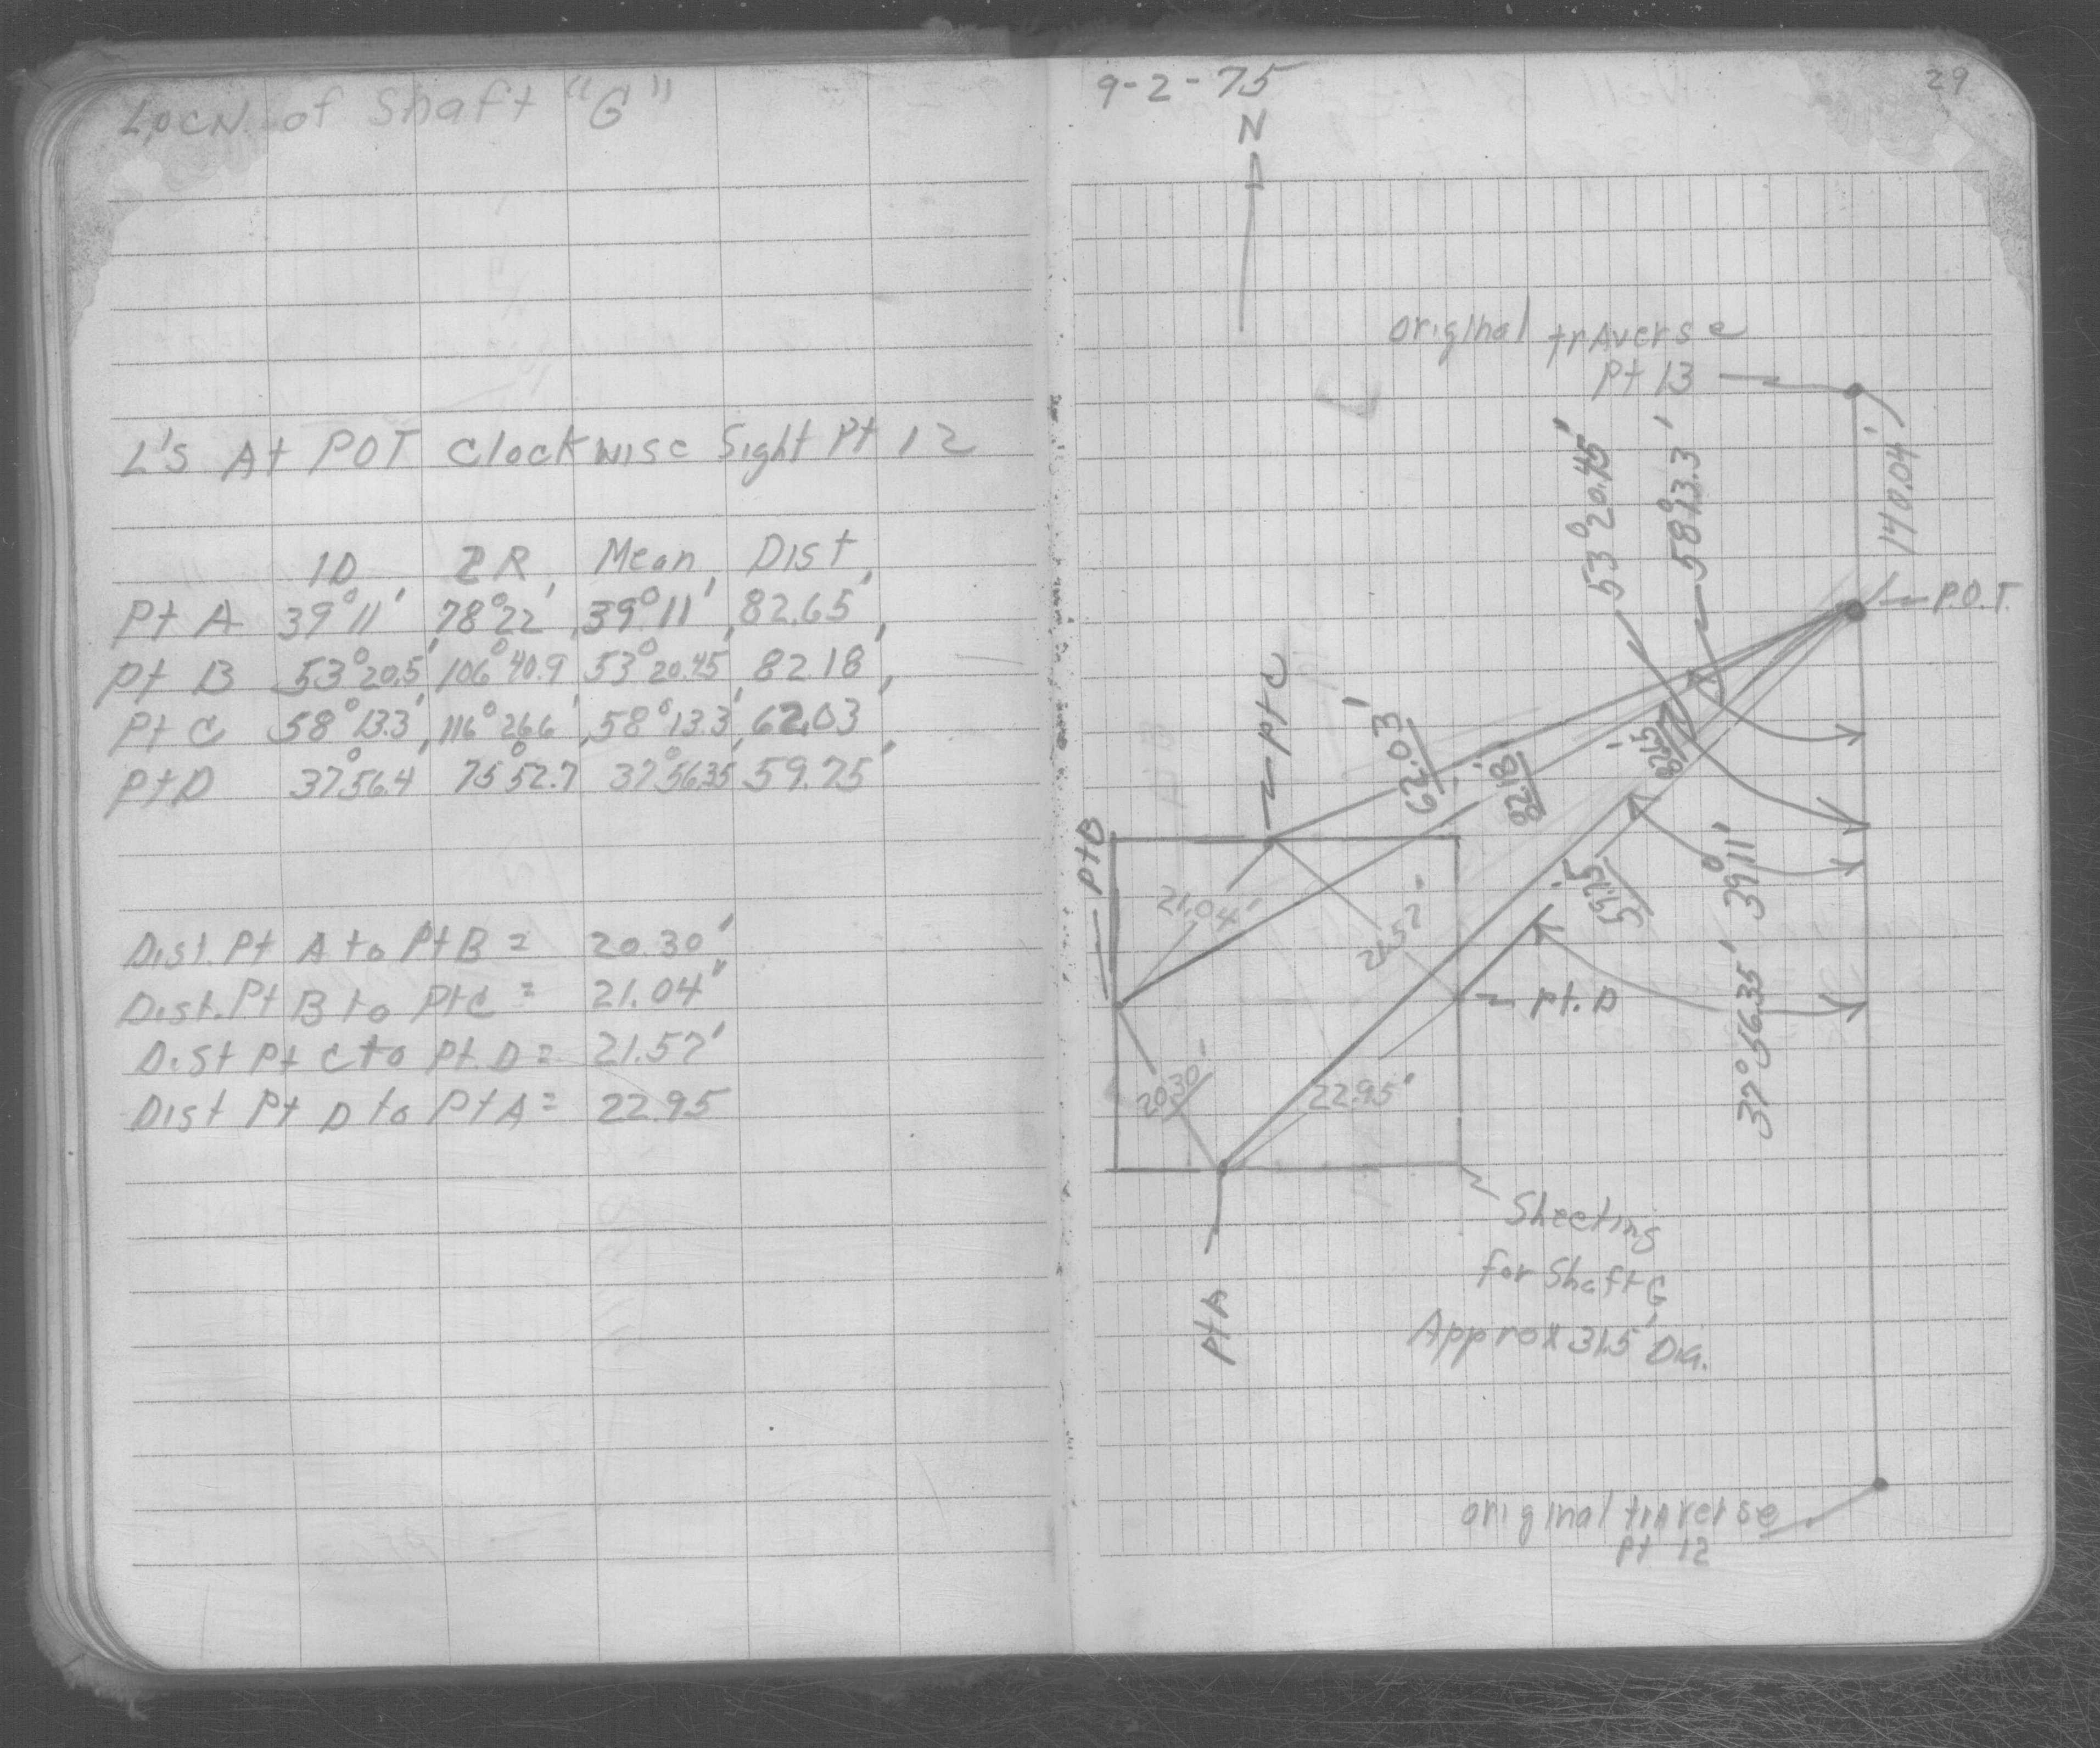 Locn. of Shaft "G"
L's At POT Clockwise Sight Pt 12
1D 2R Mean Dist
Pt A 39°11' 78°22' 39°11' 82.65'
Pt B 53°20.5' 106°40.9' 53°20.45' 82.18'
Pt C 58°13.3' 116°26.6' 58°13.3' 62.03'
Pt D 37°56.4 75°52.7 37°56.35 59.75'
Dist. Pt A to Pt B = 20.30'
Dist. Pt B to Pt C = 21.04'
Dist Pt C to Pt. D = 21.57'
Dist Pt D to Pt A = 22.95
9-2-75
29
N
original traverse
Pt 13
140.04'
53°20.45'
58°13.3'
P.O.T.
Pt C
62.03'
82.18'
82.65'
Pt B
21.04'
21.57'
59.75'
39°11'
Pt. D
37°56.35'
20.30'
22.95'
Pt A
Sheeting
for Shaft G
Approx 31.5' Dia.
original traverse
Pt 12